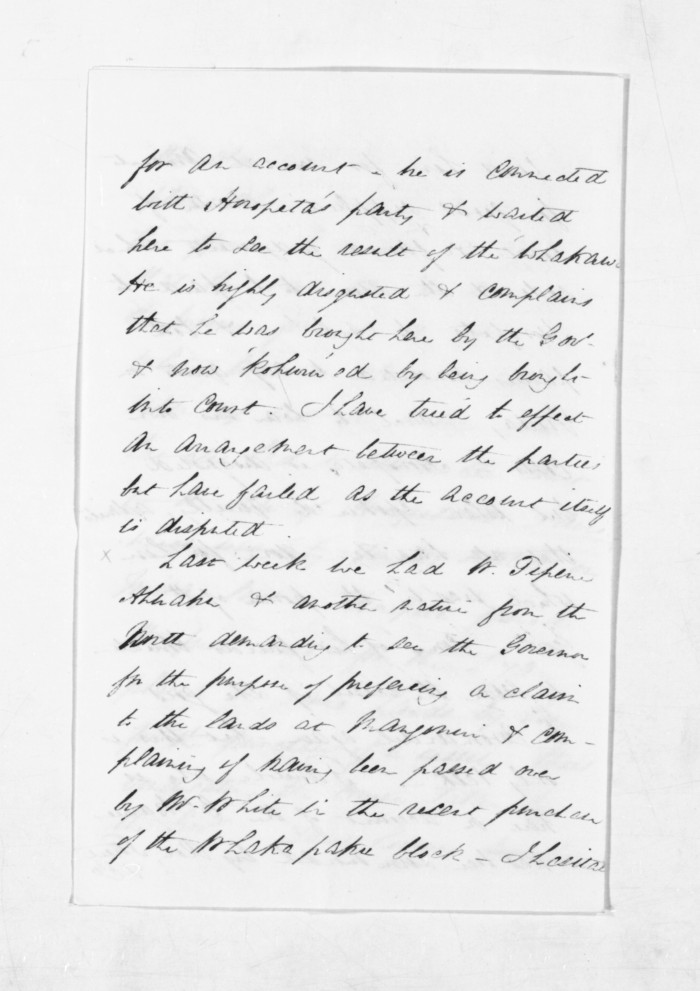 for an account - he is connected
with Horopeta's party & waited
here to see the result of the Whakawa
He is highly disgusted & complains
that he was brought here by the Gov.
& now 'Kohuru'ed by being brought
into Court. I have tried to effect
an arrangement between the parties
but have failed as the account itself
is disputed.
Last week we had W. Tipene
& another native from the
North demanding to see the Governor
for the purpose of prefering a claim
to the lands at Mangonui & com-
plaining of having been passed over
by Mr. White in the recent purchase
of the block -